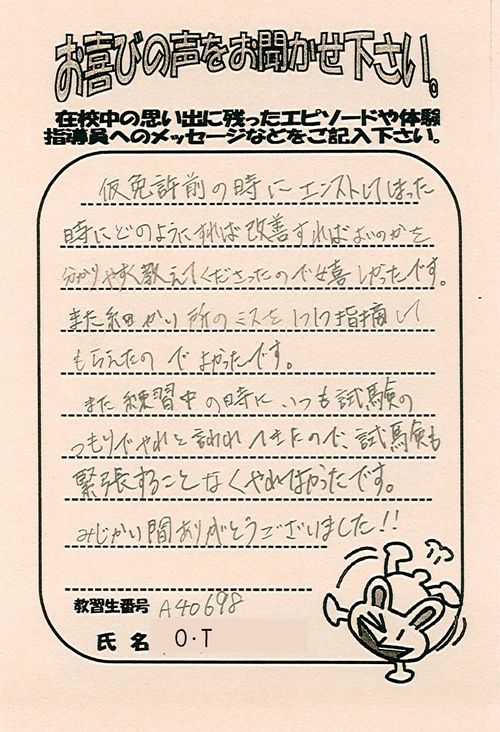 お喜びの声をお聞かせ下さい。
在校中の思い出に残ったエピソードや体験
指導員へのメッセージなどをご記入下さい。
仮免許前の時にエンストしてしまった
時にどのようにすれば改善すればよいのかを
分かりやすく教えてくださったので嬉しかったです。
また細かい所のミスを 指摘して
もらえたのでよかったです。
また練習中の時にいつも試験の
つもりでやれと言われてきたので、試験も
緊張することなくやれてよかったです。
みじかい間ありがとうございました!!
教習生番号 A40698
氏名 O・T